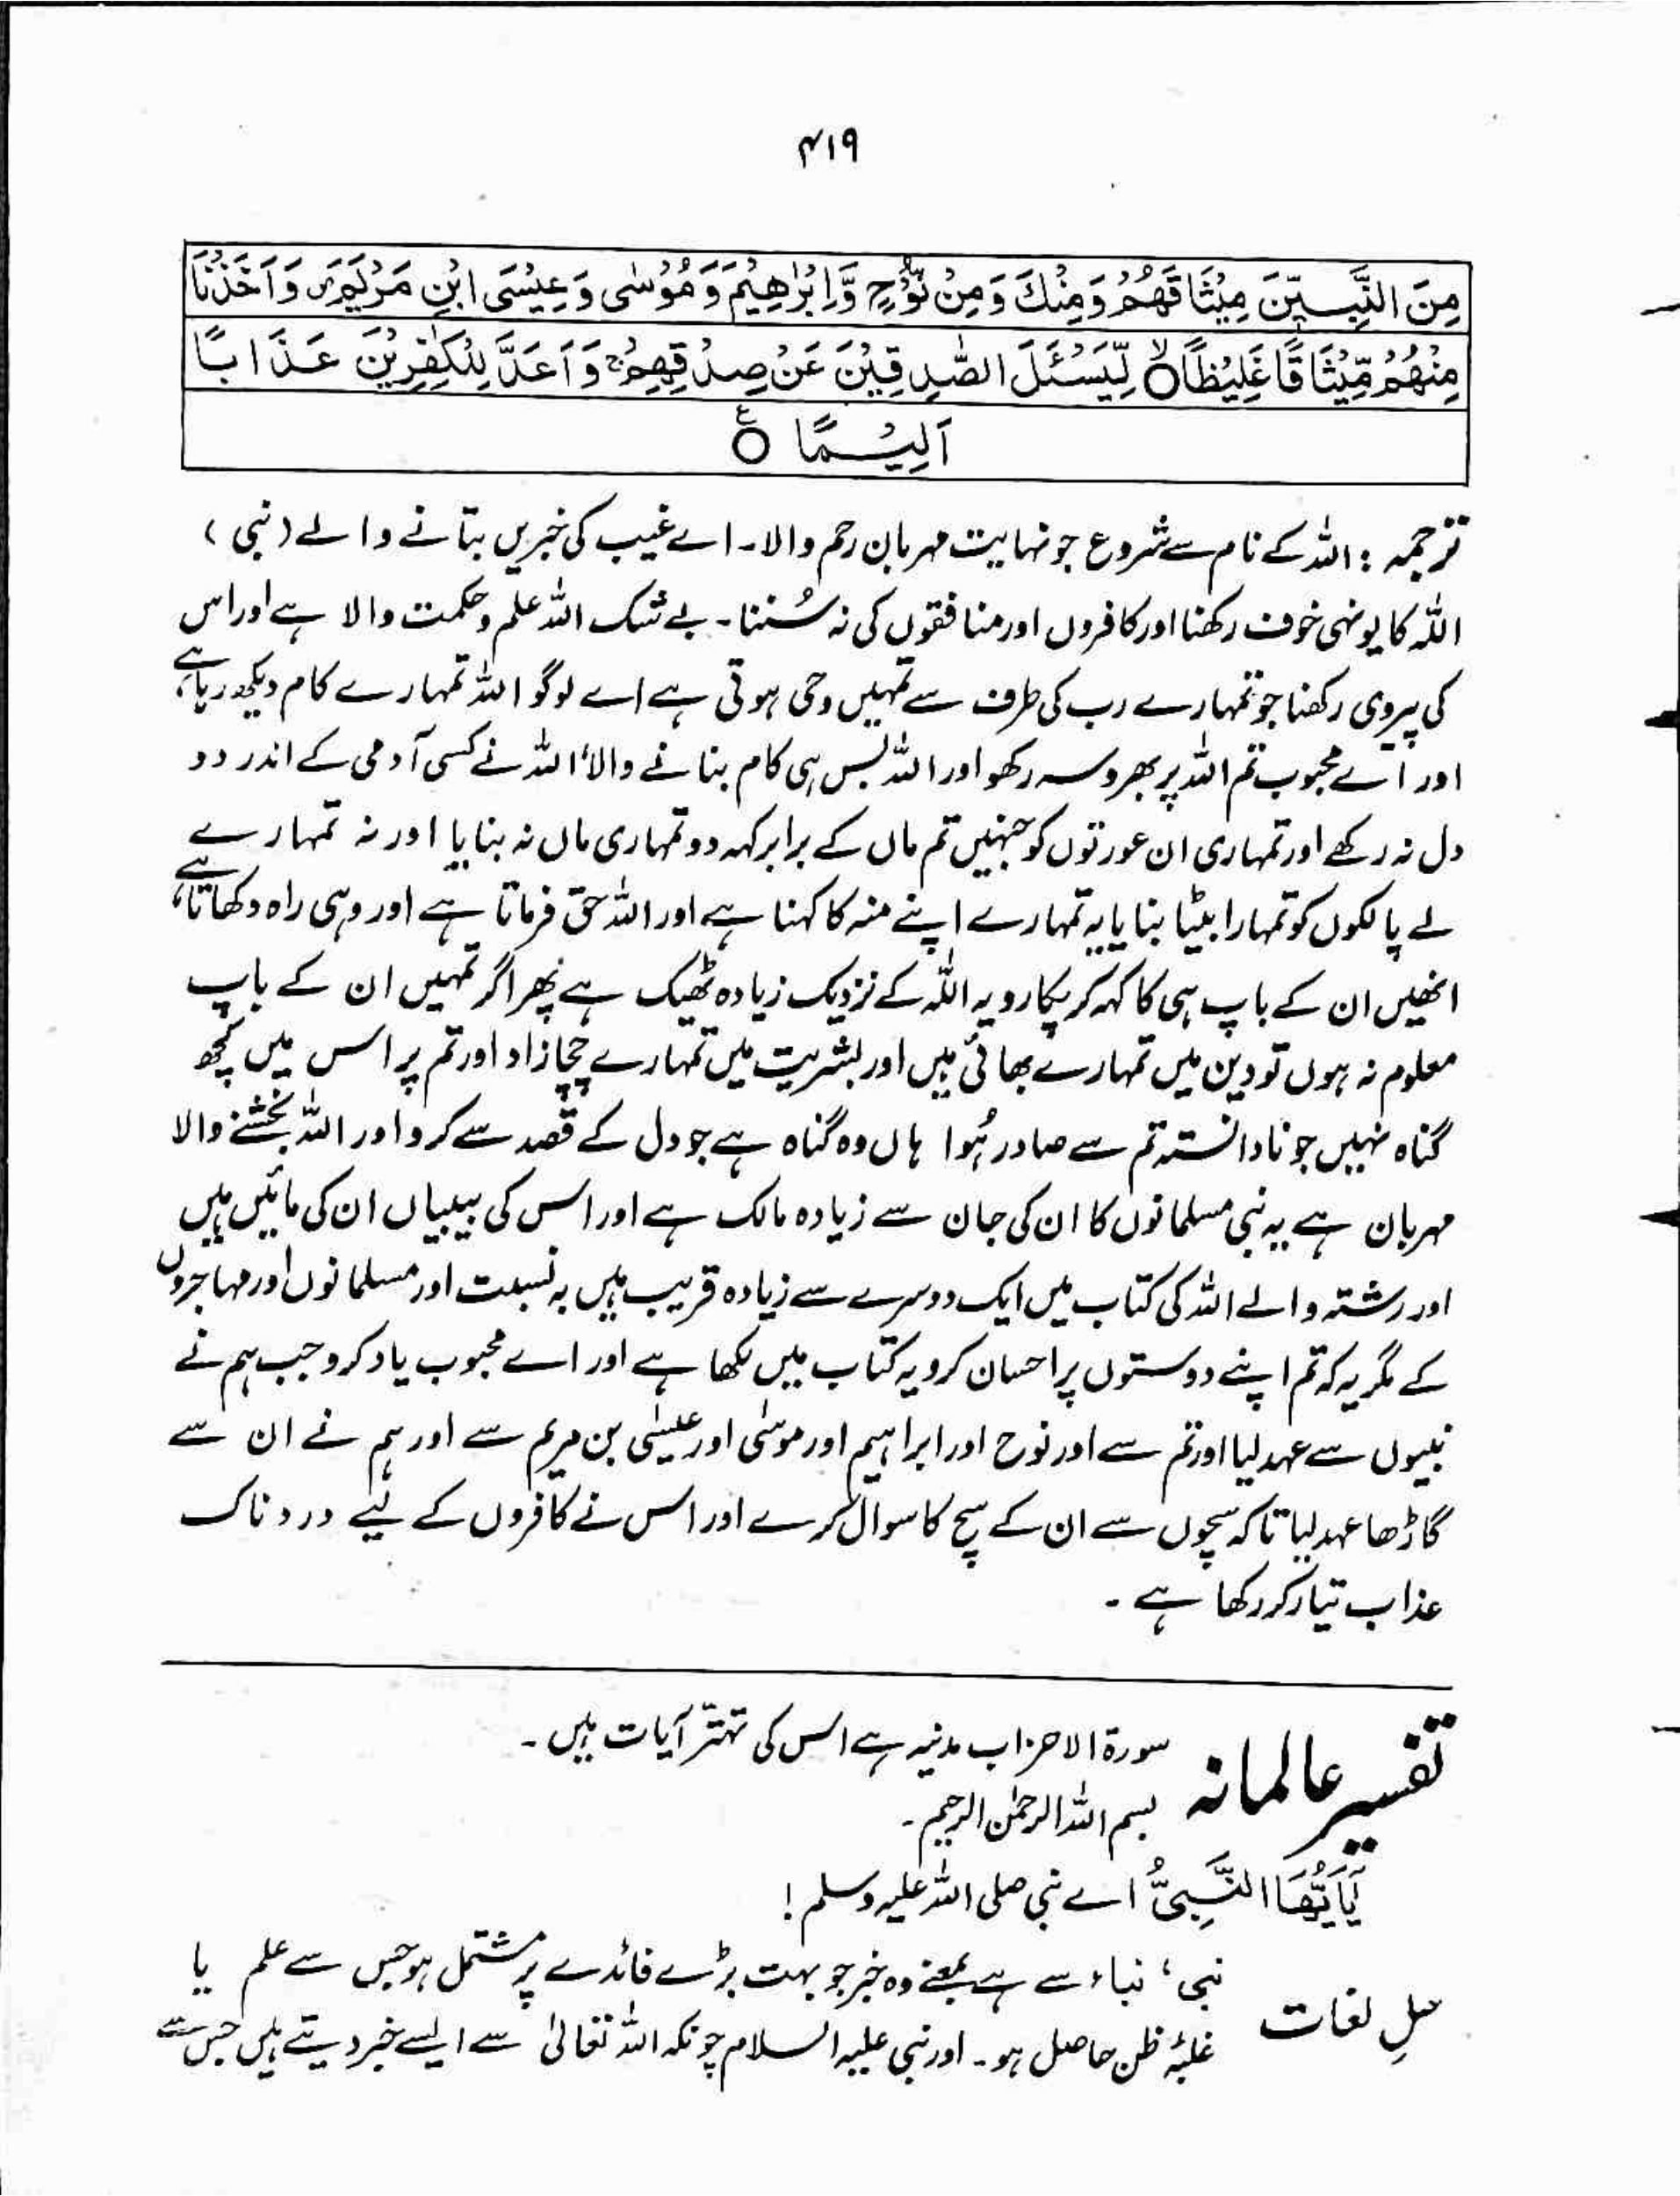 ۴۱۹
مِنَ النَّبِيّٖنَ مِيْثَاقَهُمْ وَمِنْكَ وَمِنْ نُّوْحٍ وَّاِبْرٰهِيْمَ وَمُوْسٰى وَعِيْسَى ابْنِ مَرْيَمَ وَاَخَذْنَا
مِنْهُمْ مِّيْثَاقًا غَلِيْظًا ۙ لِّيَسْـَٔلَ الصّٰدِقِيْنَ عَنْ صِدْقِهِمْ ۚ وَاَعَدَّ لِلْكٰفِرِيْنَ عَذَابًا
اَلِيْمًا ۧ
ترجمہ : اللہ کے نام سے شروع جو نہایت مہربان رحم والا۔ اے غیب کی خبریں بتانے والے (نبی)
اللہ کا یونہی خوف رکھنا اور کافروں اور منافقوں کی نہ سُننا۔ بے شک اللہ علم و حکمت والا ہے اور اس
کی پیروی رکھنا جو تمہارے رب کی طرف سے تمہیں وحی ہوتی ہے اے لوگو اللہ تمہارے کام دیکھ رہا ہے،
اور اے محبوب تم اللہ پر بھروسہ رکھو اور اللہ بس ہی کام بنانے والا، اللہ نے کسی آدمی کے اندر دو
دل نہ رکھے اور تمہاری ان عورتوں کو جنہیں تم ماں کے برابر کہہ دو تمہاری ماں نہ بنایا اور نہ تمہارے
لے پالکوں کو تمہارا بیٹا بنایا یہ تمہارے اپنے منہ کا کہنا ہے اور اللہ حق فرماتا ہے اور وہی راہ دکھاتا ہے،
انھیں ان کے باپ ہی کا کہہ کر پکارو یہ اللہ کے نزدیک زیادہ ٹھیک ہے پھر اگر تمہیں ان کے باپ
معلوم نہ ہوں تو دین میں تمہارے بھائی ہیں اور بشریت میں تمہارے چچازاد اور تم پر اس میں کچھ
گناہ نہیں جو نادانستہ تم سے صادر ہُوا ہاں وہ گناہ ہے جو دل کے قصد سے کرو اور اللہ بخشنے والا
مہربان ہے یہ نبی مسلمانوں کا ان کی جان سے زیادہ مالک ہے اور اس کی بیبیاں ان کی مائیں ہیں
اور رشتہ والے اللہ کی کتاب میں ایک دوسرے سے زیادہ قریب ہیں بہ نسبت اور مسلمانوں اور مہاجروں
کے مگر یہ کہ تم اپنے دوستوں پر احسان کرو یہ کتاب میں لکھا ہے اور اے محبوب یاد کرو جب ہم نے
نبیوں سے عہد لیا اور تم سے اور نوح اور ابراہیم اور موسٰی اور عیسٰی بن مریم سے اور ہم نے ان سے
گاڑھا عہد لیا تاکہ سچوں سے ان کے سچ کا سوال کرے اور اس نے کافروں کے لیے دردناک
عذاب تیار کر رکھا ہے۔
تفسیر عالمانہ سورۃ الاحزاب مدنیہ ہے اس کی تہتر آیات ہیں۔
بسم اللہ الرحمٰن الرحیم۔
يٰۤاَيُّهَا النَّبِيُّ اے نبی صلی اللہ علیہ وسلم !
حلِ لغات نبی، نباء سے ہے بمعنے وہ خبر جو بہت بڑے فائدے پر مشتمل ہو جس سے علم یا
غلبۂ ظن حاصل ہو۔ اور نبی علیہ السلام چونکہ اللہ تعالٰی سے ایسے خبر دیتے ہیں جس سے